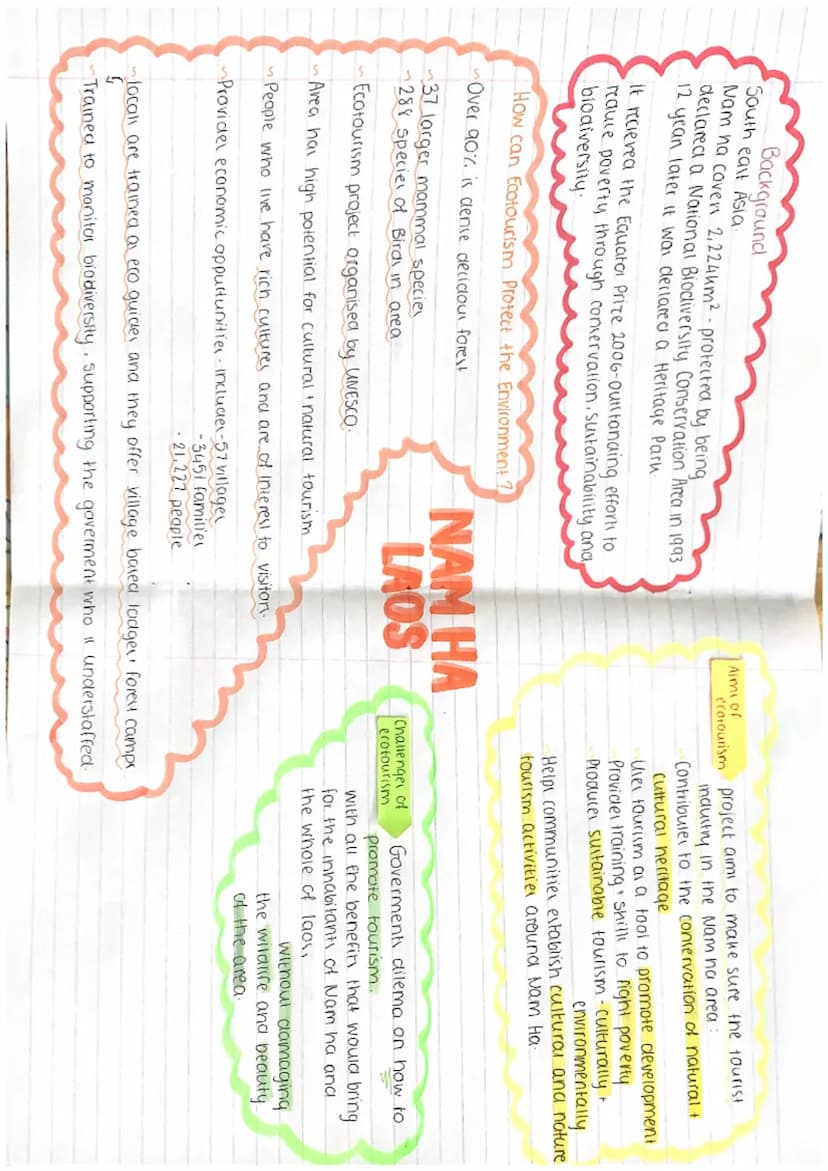 Background
South east Asia.
Nam ha covers 2,224km² - protected by being
declared a National Biodiversity Conservation Area in 1993
12 years later it was declared a Heritage Park
It recieved the Equator Prize 2006-outstanding efforts to
reduce poverty through conservation, sustainability and
biodiversity.
How can Ecotourism Protect the Environment?
~Over 90% is dense decidous forest
~37 larger mammal species
~288 species of Birds in area
~Ecotourism project organised by UNESCO.
~Area has high potential for cultural + natural tourism
~People who live have rich cultures and are of interest to visitors.
~Provides economic oppurtunities. includes -57 villages
- 3451 families
- 21,227 people
~locals are trained as eco guides and they offer village based lodges + forest camps
~Trained to monitor biodiversity, supporting the goverment who is understaffed.
NAM HA
LAOS
Aims of
ecotourism
project aims to make sure the tourist
industry in the Nam ha area:
~Contributes to the conservation of natural +
cultural heritage
~Uses tourism as a tool to promote development
~Provides training + skills to fight poverty
~Produces sustainable tourism - culturally +
environmentally
~Helps communities establish cultural and nature
tourism activities around Nam Ha.
Challenges of
ecotourism
Goverments dilema on how to
promote tourism.
with all the benefits that would bring
for the inhabitants of Nam ha and
the whole of laos,
without damaging
the wildlife and beauty
of the area.